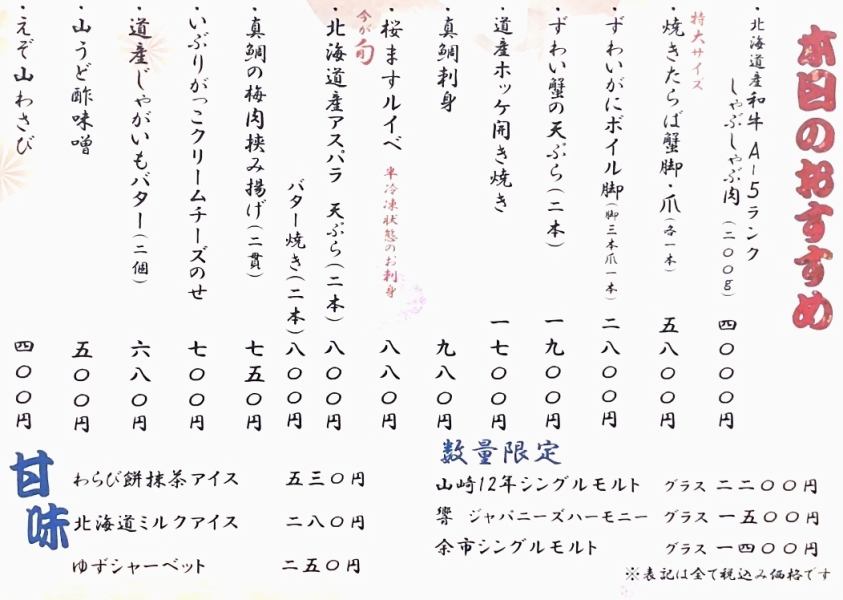 本日のおすすめ
・北海道産和牛 A-5ランク
しゃぶしゃぶ肉(二〇〇g) 四〇〇〇円
特大サイズ
・焼きたらば蟹脚・爪(各一本) 五八〇〇円
・ずわいがにボイル脚(脚三本爪一本) 二八〇〇円
・ずわい蟹の天ぷら(二本) 一九〇〇円
・道産ホッケ開き焼き 一七〇〇円
・真鯛刺身 九八〇円
・桜ますルイベ 半冷凍状態のお刺身 八八〇円
今が旬
・北海道産アスパラ 天ぷら(二本) 八〇〇円
バター焼き(二本) 八〇〇円
・真鯛の梅肉挟み揚げ(二貫) 七五〇円
・いぶりがっこクリームチーズのせ 七〇〇円
・道産じゃがいもバター(二個) 六八〇円
・山うど酢味噌 五〇〇円
・えぞ山わさび 四〇〇円
数量限定
山崎12年シングルモルト グラス 二二〇〇円
響 ジャパニーズハーモニー グラス 一五〇〇円
余市シングルモルト グラス 一四〇〇円
※表記は全て税込み価格です
甘味
わらび餅抹茶アイス 五三〇円
北海道ミルクアイス 二八〇円
ゆずシャーベット 二五〇円